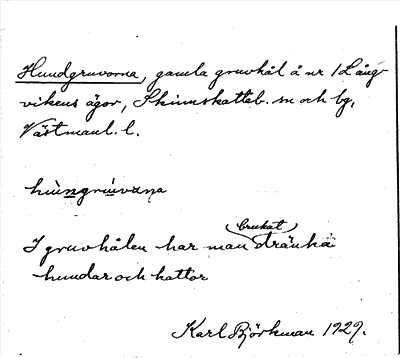 Hundgruvorna, gamla gruvhål å nr 1 Lång-
vikens ägor, Skinnskatteb. sn och bg,
Västmanl. l.
hùngrùvana
I gruvhålen har man brukat dränka
hundar och kattor
Karl Björkman 1929.